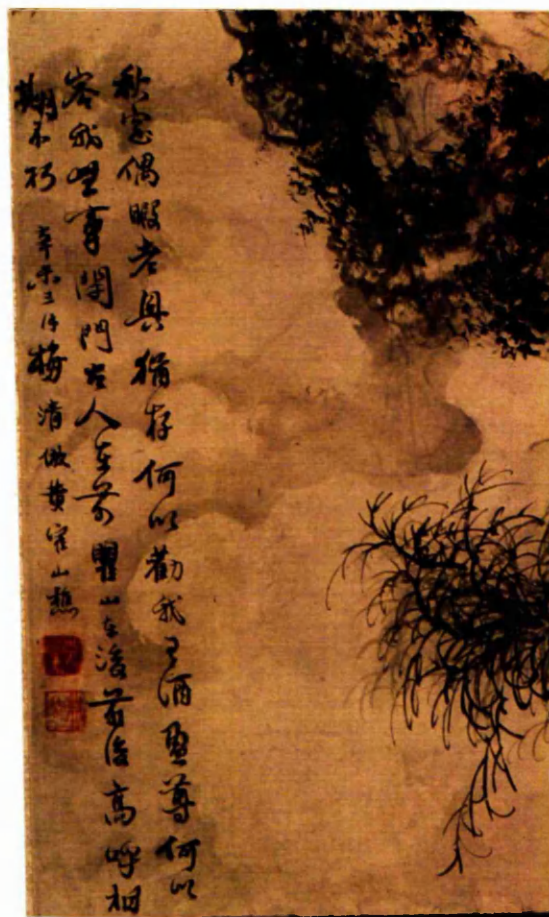 秋窓偶暇老興猶存何以勸我有酒盈尊何以
答我無事閉門古人在前瞿山在後前後高呼相
期不朽 辛未三 梅清倣黃寉山樵